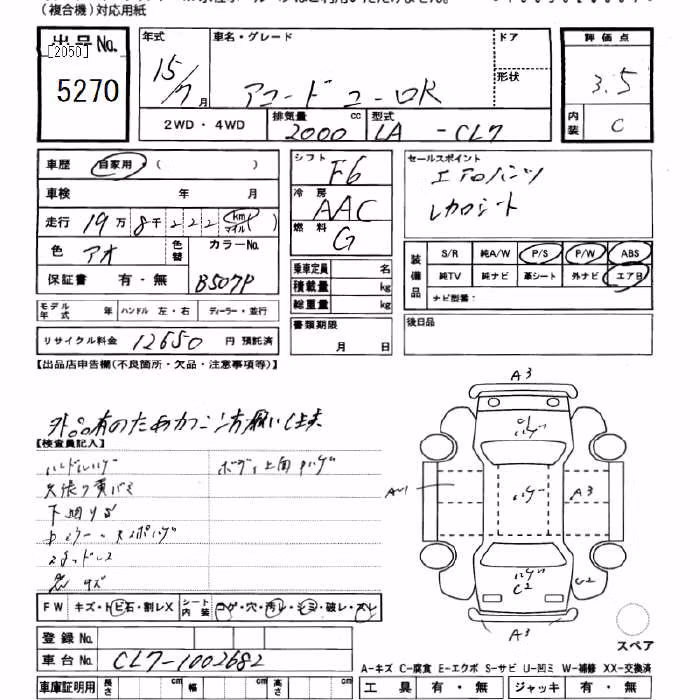 (複合機)対応用紙
出品No.
[2050]
5270
年式
15/7月
車名・グレード
アコードユーロR
ドア
形状
評価点
3.5
内装
C
2WD・4WD
排気量
2000
cc
型式
LA -CL7
車歴
自家用
( )
車検 年 月
走行 19万8千222 (km マイル)
色 アオ
色替
カラーNo.
B507P
保証書 有・無
モデル年式 年
ハンドル 左・右
ディーラー・並行
リサイクル料金 12650 円 預託済
シフト F6
冷房 AAC
燃料 G
乗車定員 名
積載量 kg
総重量 kg
書類期限
月 日
セールスポイント
エアロパーツ
レカロシート
装備品
S/R 純A/W P/S P/W ABS
純TV 純ナビ 革シート 外ナビ エアB
ナビ型番:
後日品
【出品店申告欄(不良箇所・欠品・注意事項等)】
【検査員記入】
ハンドルハゲ
天張り黄バミ
下廻りサビ
ボディ上面
FW キズ・トビ石・割レX
シート内装 コゲ・穴・汚レ・シミ・破レ・スレ
登録No.
車台No. CL7-1002682
車庫証明用 長さ cm 幅 cm 高さ cm
A3
ハゲ
A3
ハゲ
C2
C2
A3
スペア
A-キズ C-腐食 E-エクボ S-サビ U-凹ミ W-補修 XX-交換済
工具 有・無 ジャッキ 有・無